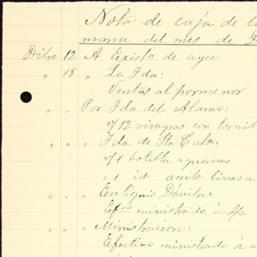 Nota de caja de la
mana del mes de
Dibre 12 A Exista de ayer
" 18 " La Fda:
Ventas al pormenor
" " Por Fda del Alamo:
c/12 visagras con tornil
" " " Fda de Sta Cata:
c/1 botella aguarras
" 1 id aceite linaza
" " " Eutiquio Dávila:
Efvo ministrado á 4c
" " " Ministracion:
Efectivo ministrado á